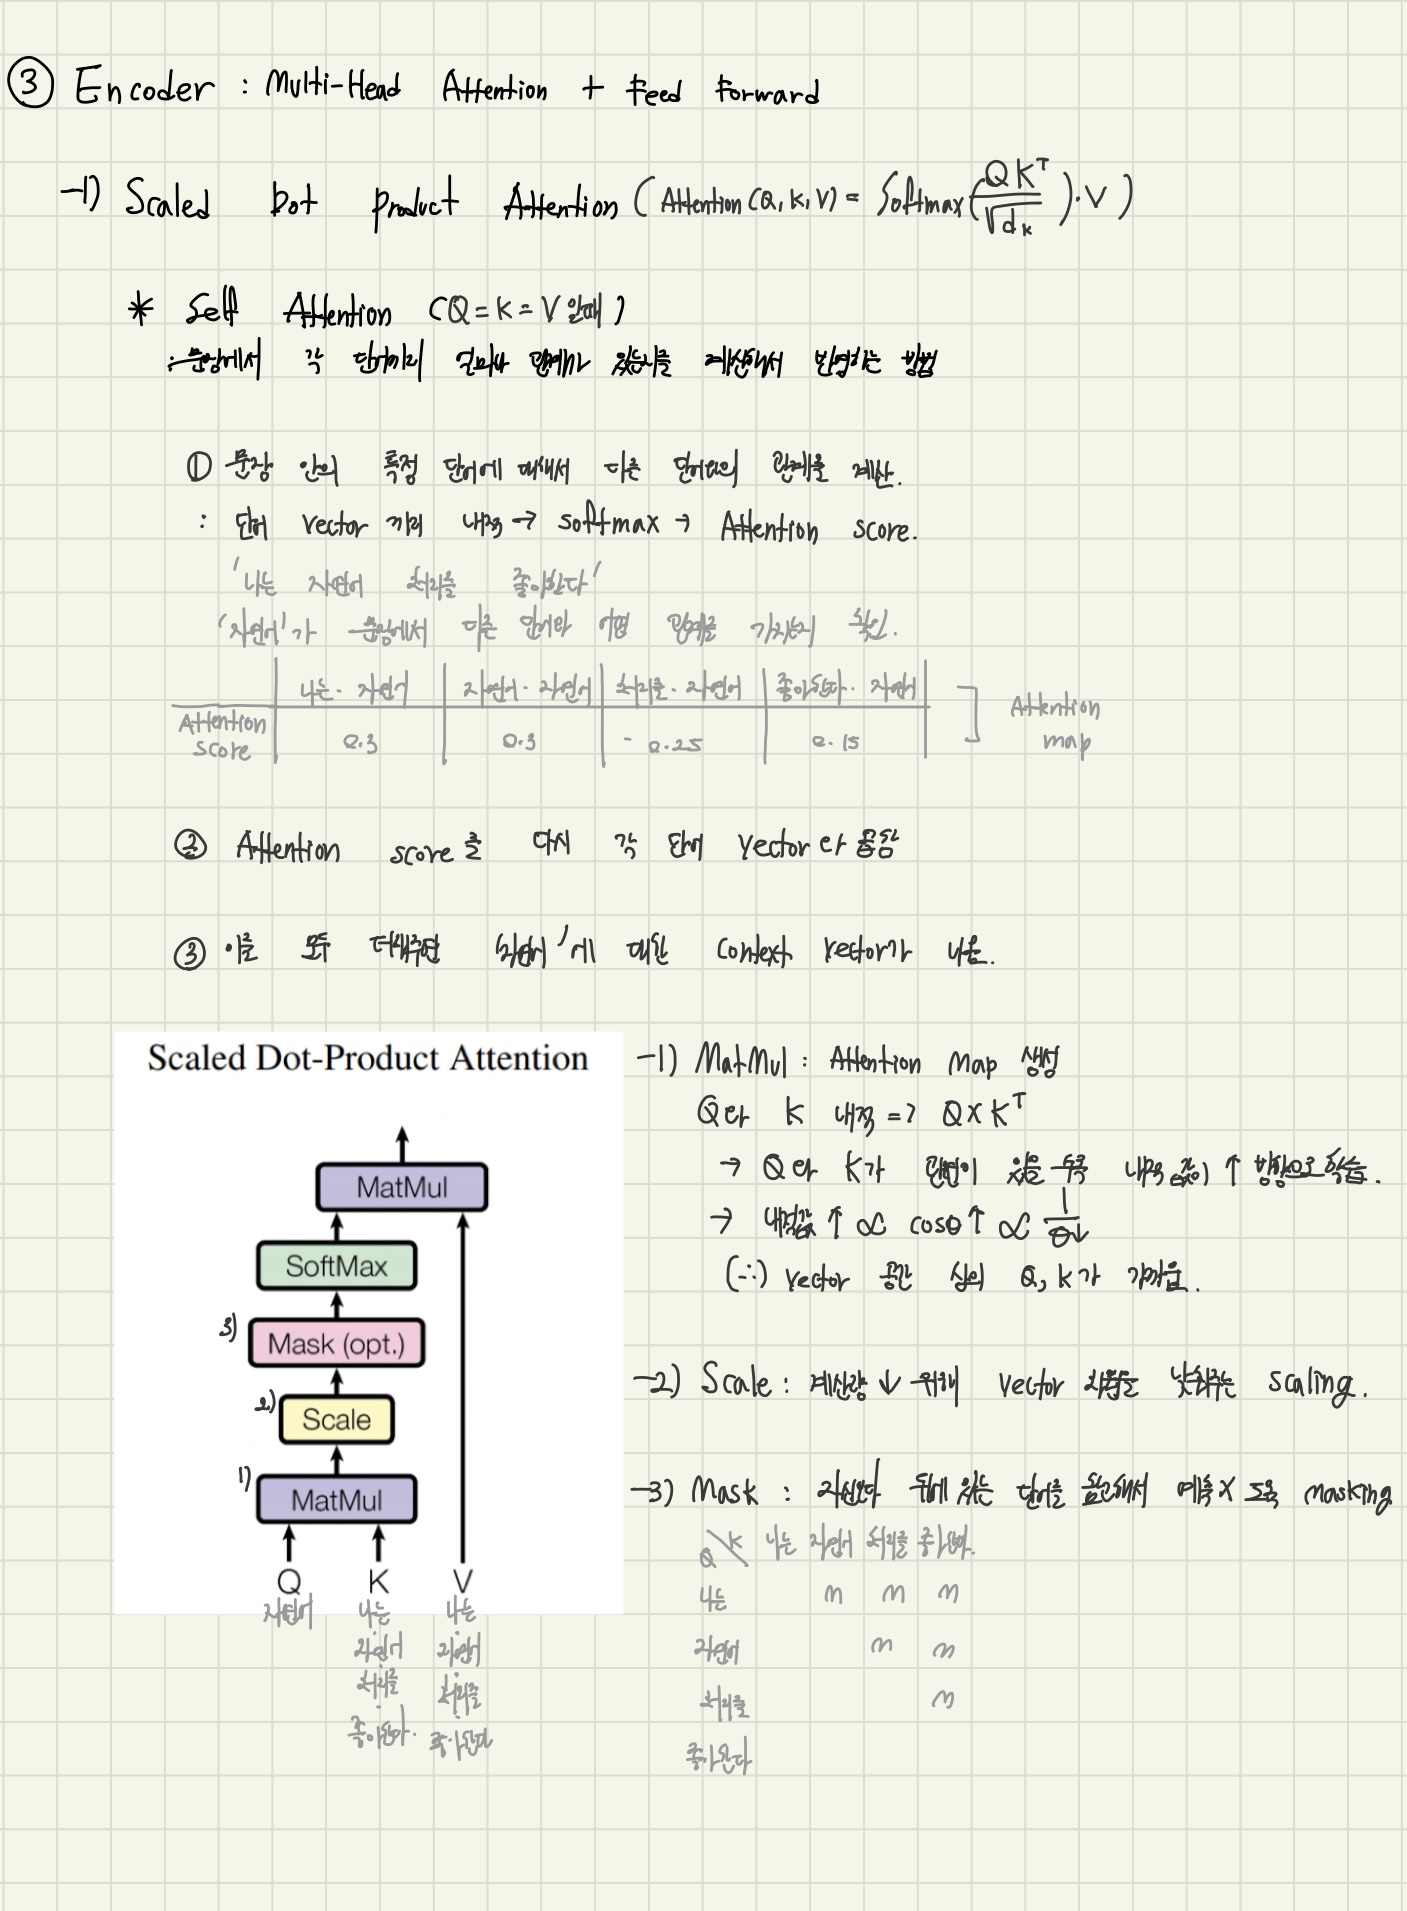 ③ Encoder : Multi-Head Attention + Feed Forward
-1) Scaled Dot product Attention ( Attention (Q, K, V) = Softmax(QK^T / √d_k)·V )
* Self Attention (Q = K = V 일때)
: 문장에서 각 단어끼리 얼마나 관계가 있는지를 계산해서 반영하는 방법
① 문장 안의 특정 단어에 대해서 다른 단어와의 관계를 계산.
: 단어 vector 끼리 내적 → softmax → Attention score.
'나는 자연어 처리를 좋아한다'
'자연어'가 문장에서 다른 단어와 어떤 관계를 가지는지 확인.
나는·자연어 자연어·자연어 처리를·자연어 좋아한다·자연어
Attention score 0.3 0.3 0.25 0.15 ] Attention map
② Attention score를 다시 각 단어 vector와 곱함
③ 이를 모두 더해주면 '자연어'에 대한 context vector가 나옴.
Scaled Dot-Product Attention
MatMul
SoftMax
3) Mask (opt.)
2) Scale
1) MatMul
Q K V
자연어 나는 나는
자연어 자연어
처리를 처리를
좋아한다. 좋아한다
-1) MatMul : Attention Map 생성
Q와 K 내적 => Q×K^T
→ Q와 K가 관련이 있을 수록 내적 값이 ↑ 방향으로 학습.
→ 내적값 ↑ ∝ cosθ↑ ∝ 1/θ↓
(∴) vector 공간 상의 Q, K가 가까움.
-2) Scale : 계산량 ↓ 위해 vector 차원을 낮춰주는 scaling.
-3) Mask : 자신보다 뒤에 있는 단어를 참고해서 예측 X 도록 masking
Q\K 나는 자연어 처리를 좋아한다.
나는 m m m
자연어 m m
처리를 m
좋아한다